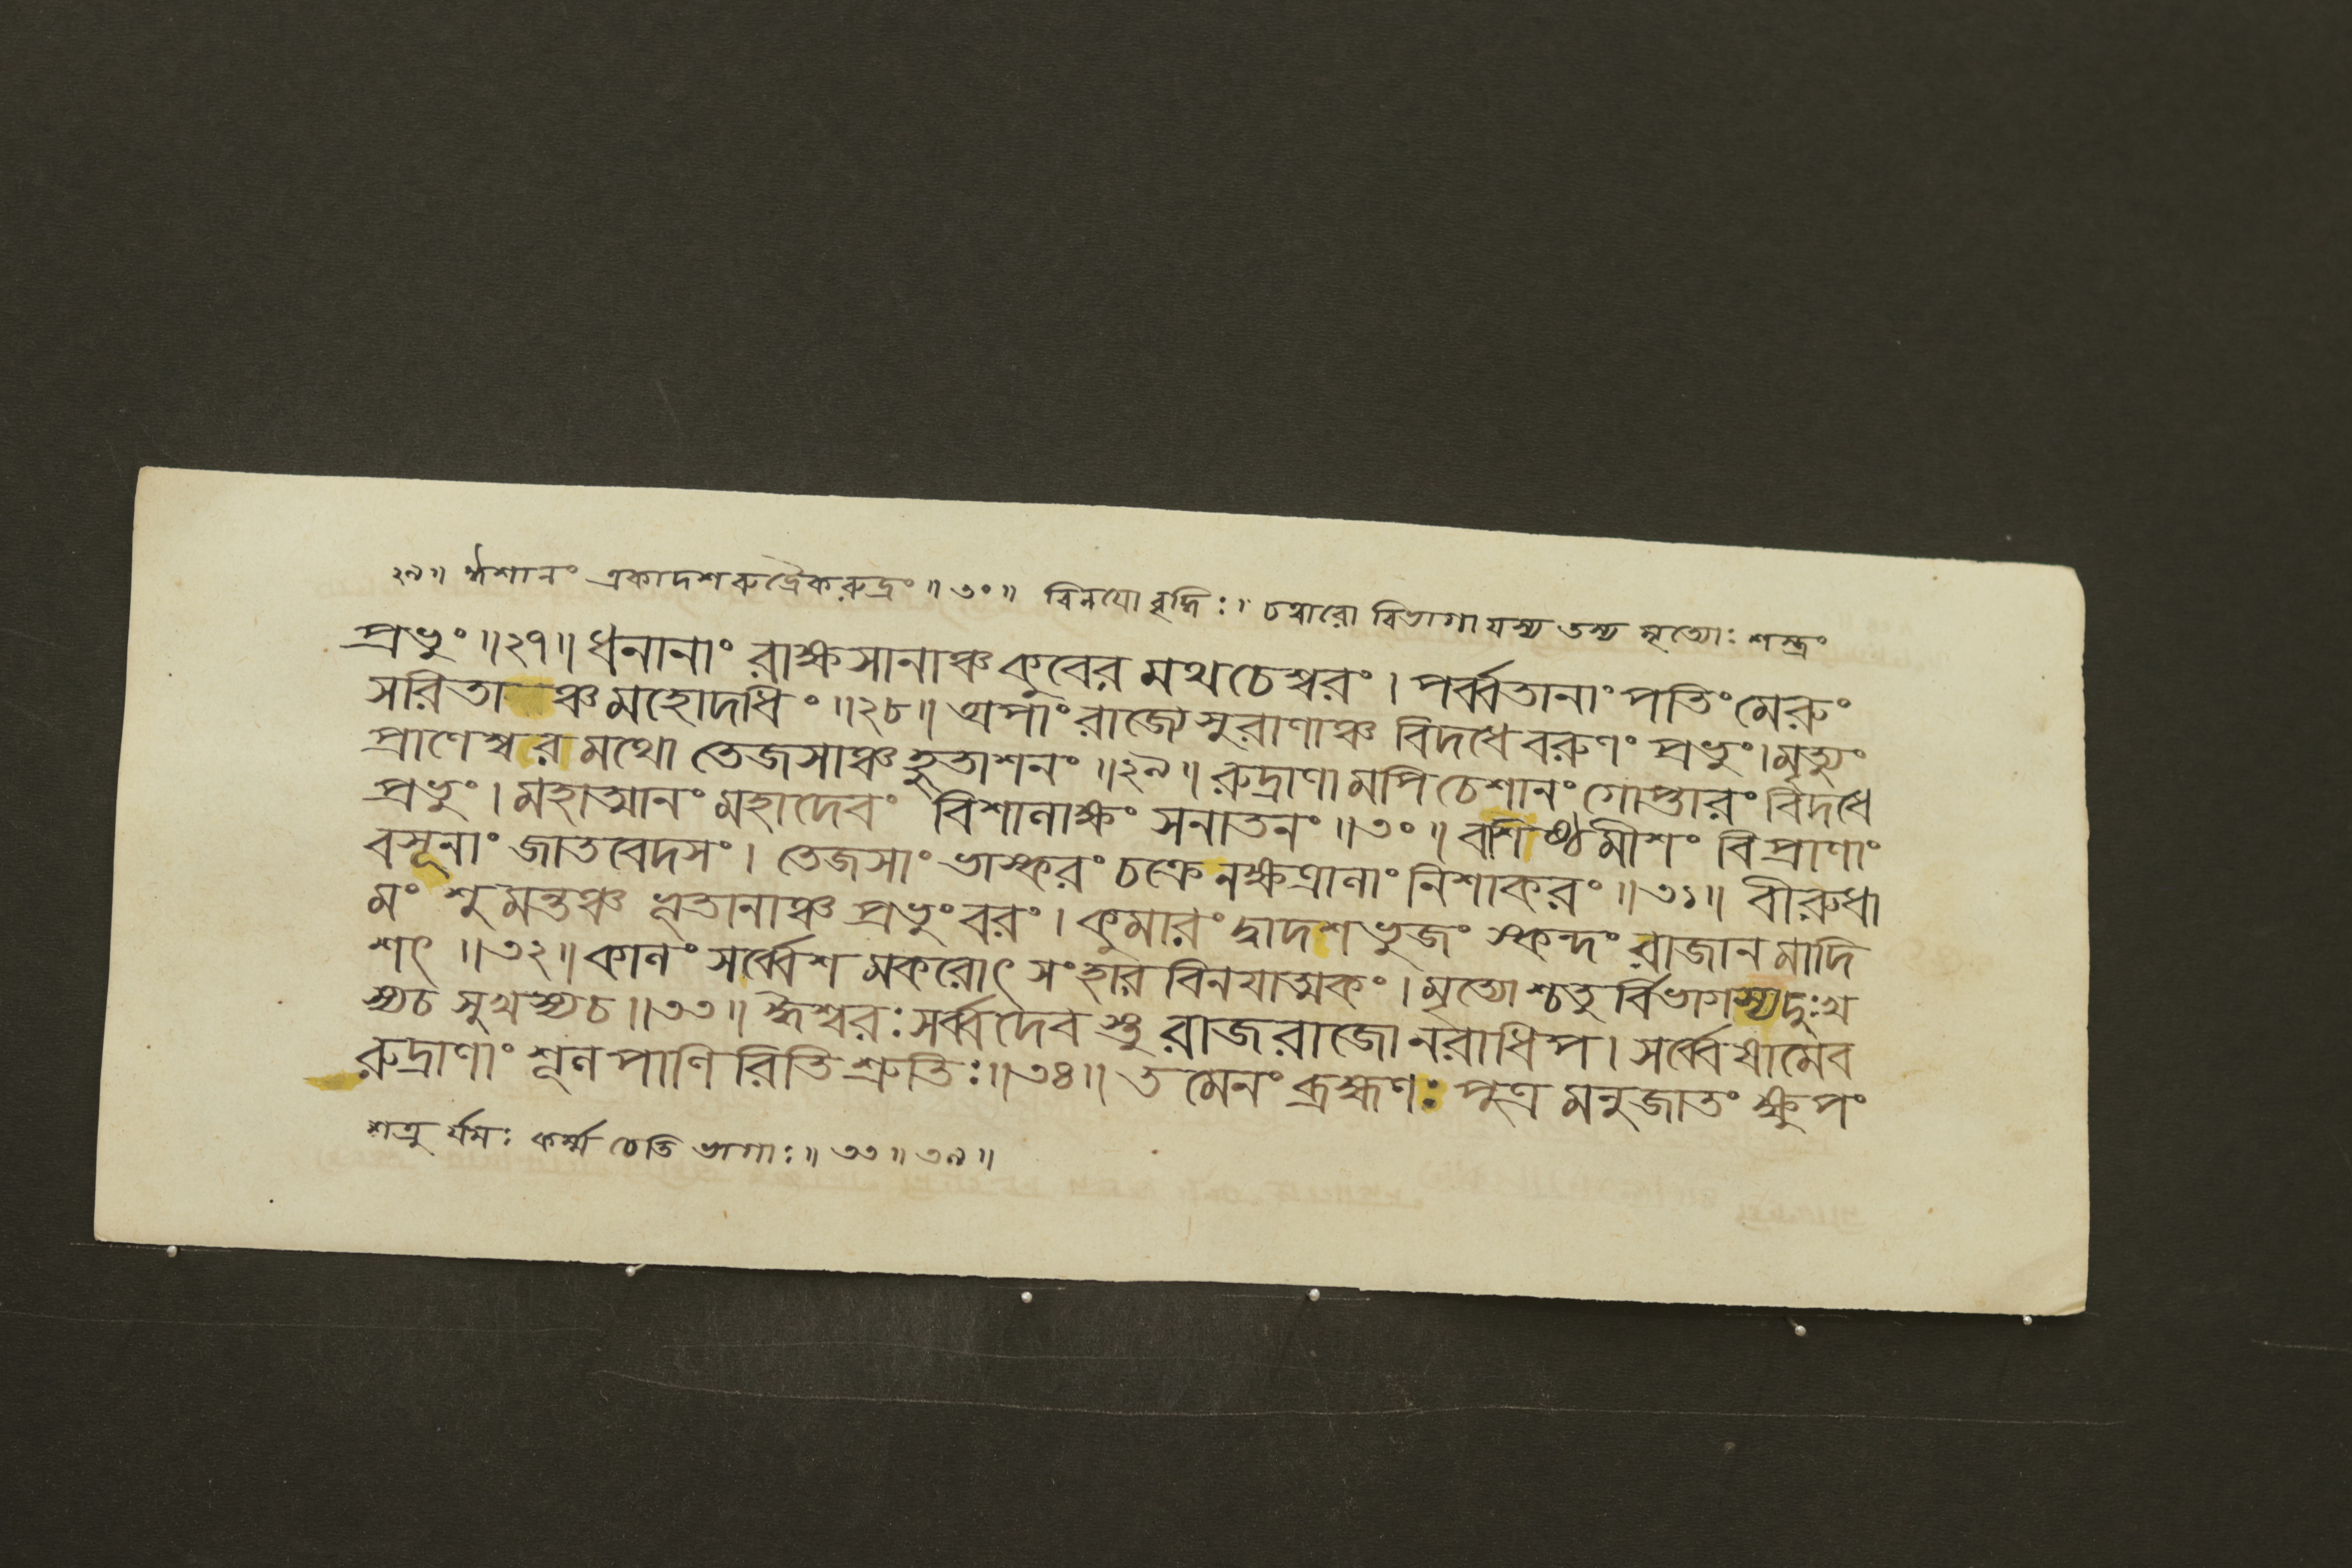 ২৯॥ ঈশানং একাদশরুদ্রৈকরুদ্রং॥৩০॥ বিনযো বৃদ্ধিঃ॥ চত্বারো বিভাগা যস্য তস্য মৃত্যোঃ শস্ত্রং
প্রভুং॥২৭॥ ধনানাং রাক্ষসানাঞ্চ কুবের মথচেশ্বরং। পর্ব্বতানাং পতিং মেরুং
সরিতা ঞ্চ মহোদধিং॥২৮॥ অপাং রাজ্যে সুরাণাঞ্চ বিদধে বরুণং প্রভুং। মৃত্যুং
প্রাণেশ্বর মথো তেজসাঞ্চ হুতাশনং॥২৯॥ রুদ্রাণামপি চেশানং গোপ্তারং বিদধে
প্রভুং। মহাত্মানং মহাদেবং বিশালাক্ষং সনাতনং॥৩০॥ বশিষ্ঠমীশং বিপ্রাণাং
বসূনাং জাতবেদসং। তেজসাং ভাস্করং চক্রে নক্ষত্রানাং নিশাকরং॥৩১॥ বীরুধা
মংশুমন্তঞ্চ ভূতানাঞ্চ প্রভুং বরং। কুমারং দ্বাদশভুজং স্কন্দং রাজানমাদি
শৎ॥৩২॥ কালং সর্ব্বেশ মকরোৎ সংহার বিনযাত্মকং। মৃত্যোশ্চতুর্বিভাগস্য দুঃখ
স্যচ সুখস্যচ॥৩৩॥ ঈশ্বরঃ সর্ব্বদেবস্তু রাজরাজো নরাধিপ। সর্ব্বেষামেব
রুদ্রাণাং শূলপাণিরিতি শ্রুতিঃ॥৩৪॥ তমেনং ব্রহ্মণঃ পুত্র মনুজাতং ক্ষুপং
শত্রুর্যমঃ কর্ম্ম চেতি ভাগাঃ॥৩৩॥৩৯॥